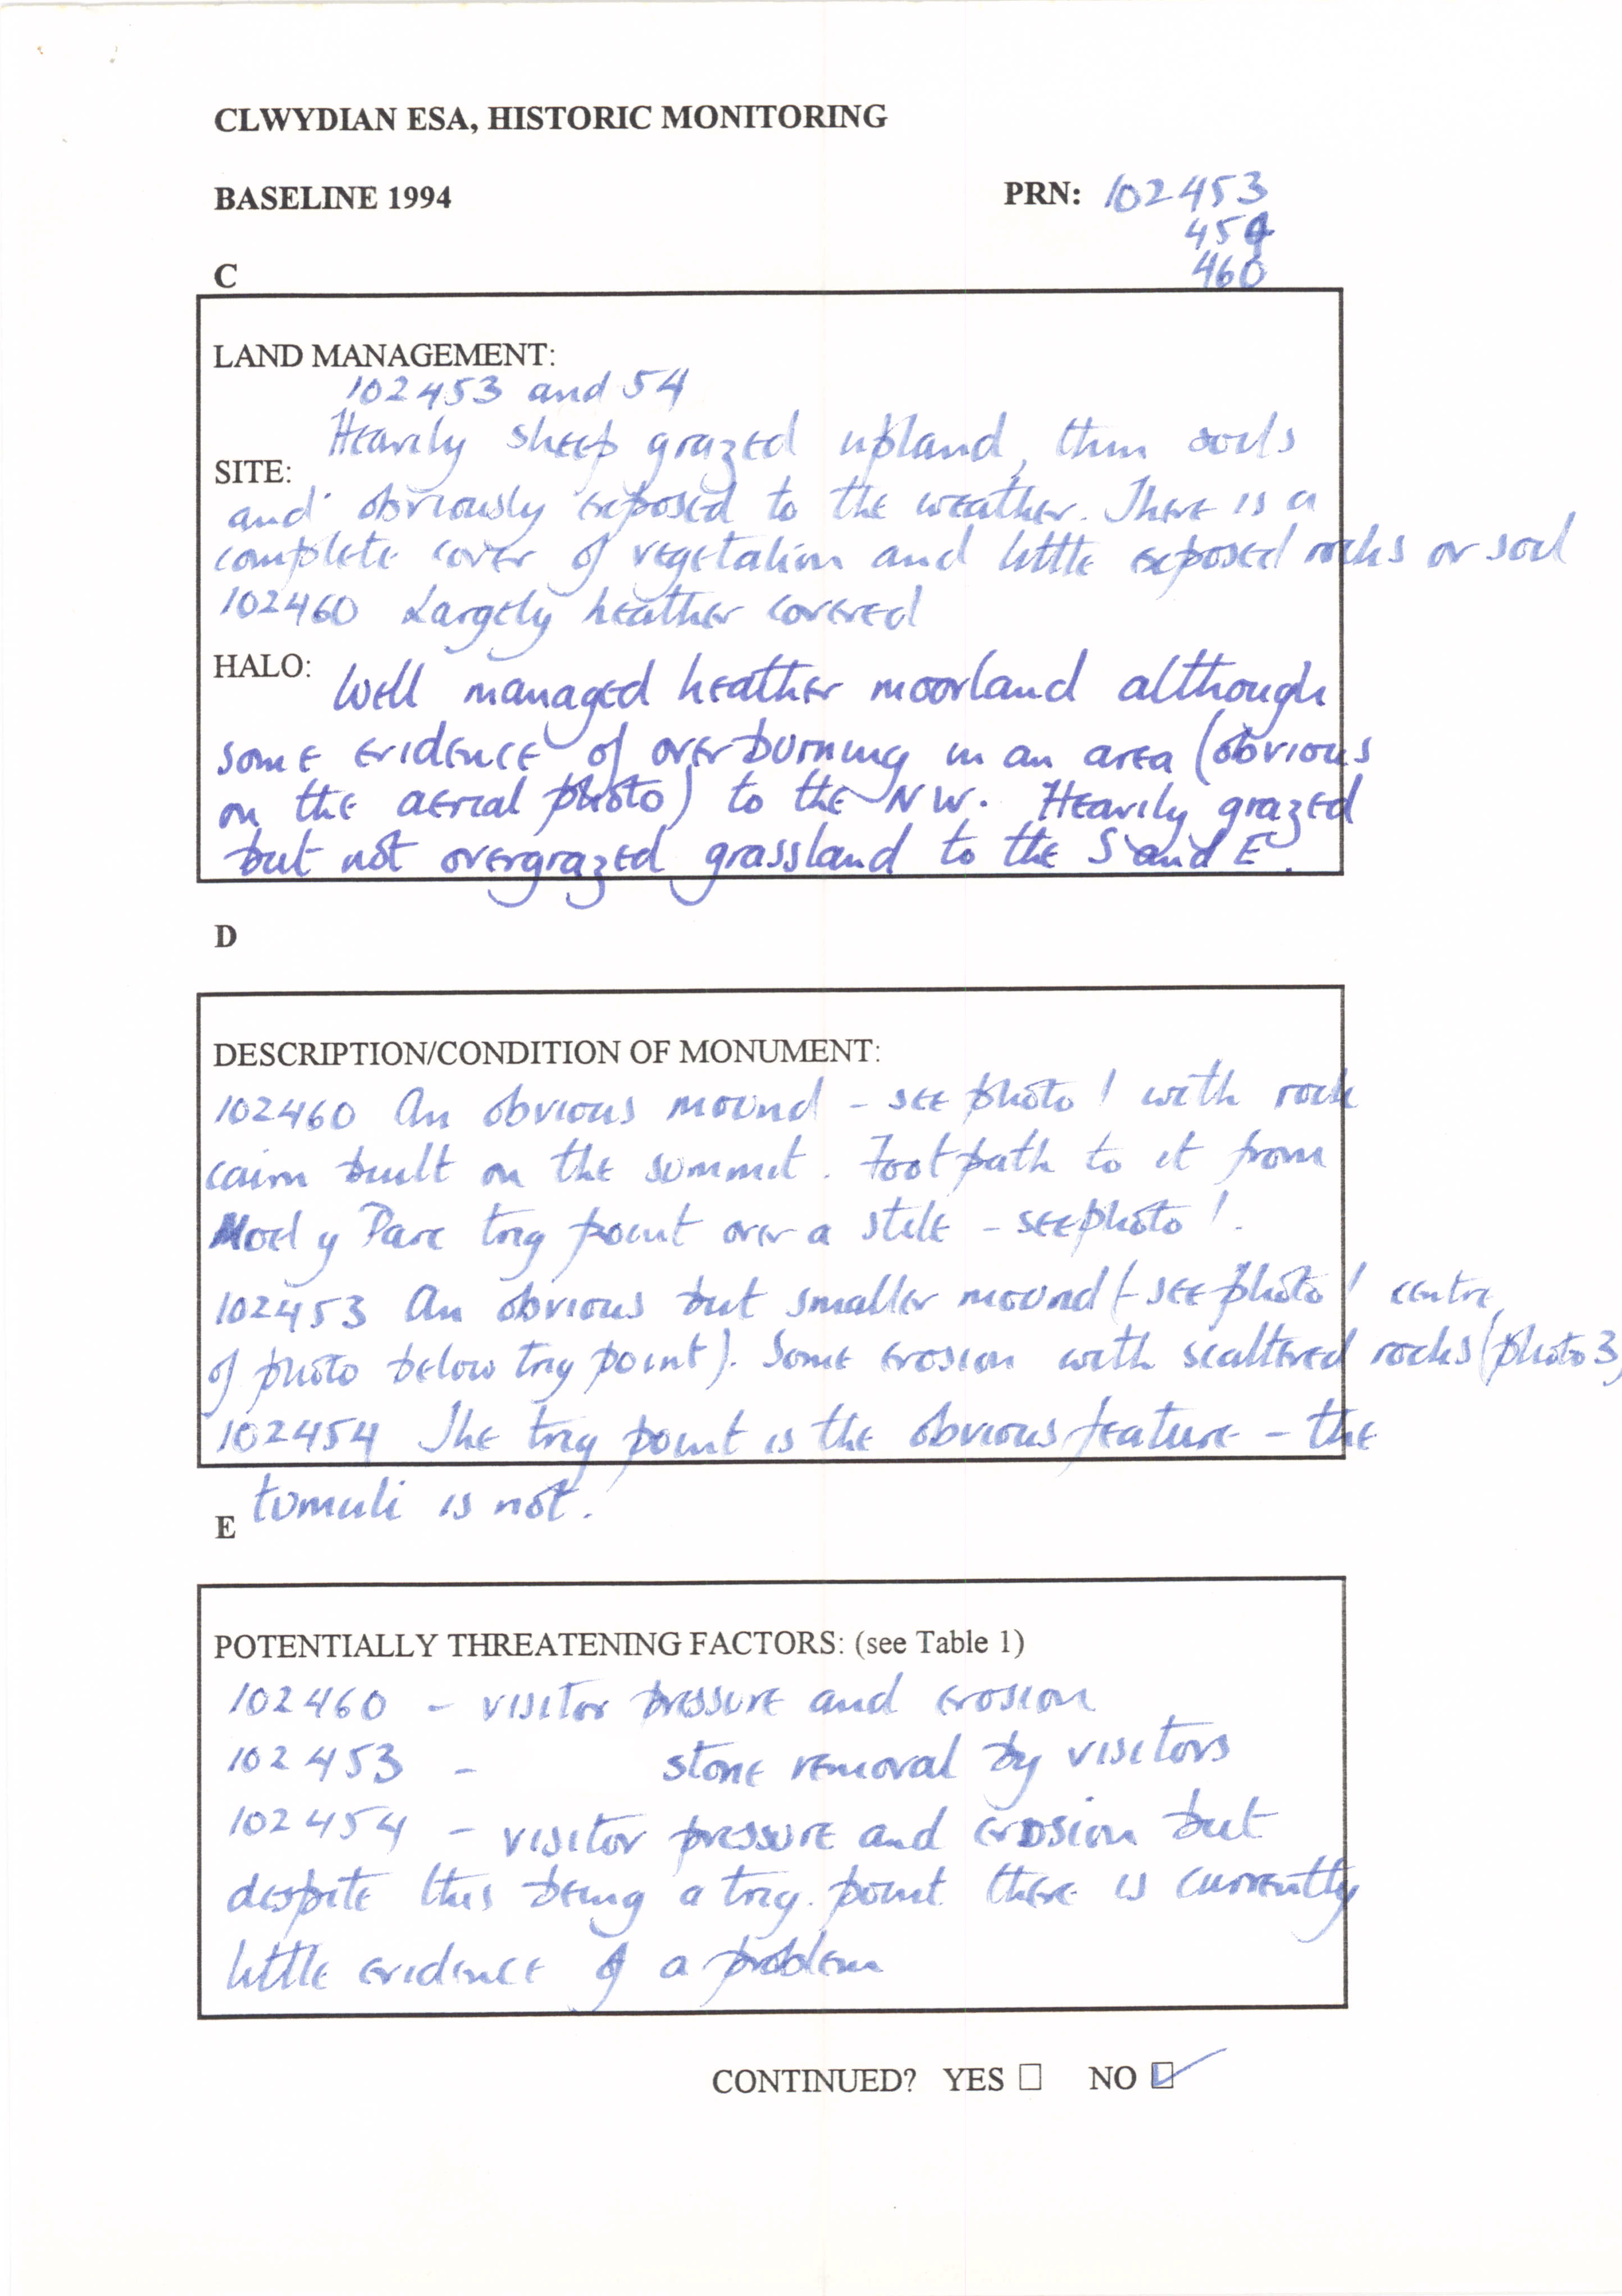 CLWYDIAN ESA, HISTORIC MONITORING
BASELINE 1994
PRN: 102453
454
460
C
LAND MANAGEMENT:
102453 and 54
Heavily sheep grazed upland, thin soils
SITE:
and obviously exposed to the weather. There is a
complete cover of vegetation and little exposed rocks or soil
102460 Largely heather covered
HALO: Well managed heather moorland although
some evidence of overburning in an area (obvious
on the aerial photo) to the NW. Heavily grazed
but not overgrazed grassland to the S and E.
D
DESCRIPTION/CONDITION OF MONUMENT:
102460 An obvious mound - see photo 1 with rock
cairn built on the summit. Footpath to it from
Moel y Parc trig point over a stile - see photo 1.
102453 An obvious but smaller mound (- see photo 1 centre
of photo below trig point). Some erosion with scattered rocks (photo 3)
102454 The trig point is the obvious feature - the
tumuli is not.
E
POTENTIALLY THREATENING FACTORS: (see Table 1)
102460 - visitor pressure and erosion
102453 - stone removal by visitors
102454 - visitor pressure and erosion but
despite this being a trig. point there is currently
little evidence of a problem
CONTINUED? YES ☐ NO ☑